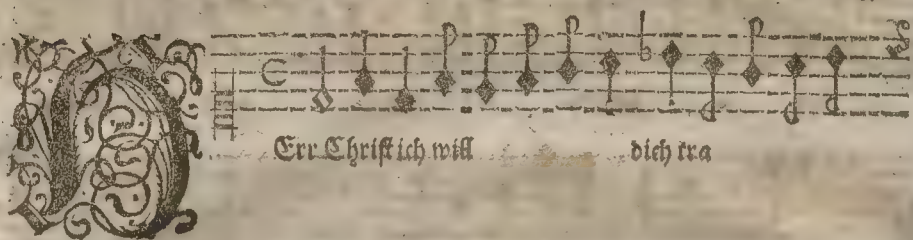 HErr Christ ich will dich tra